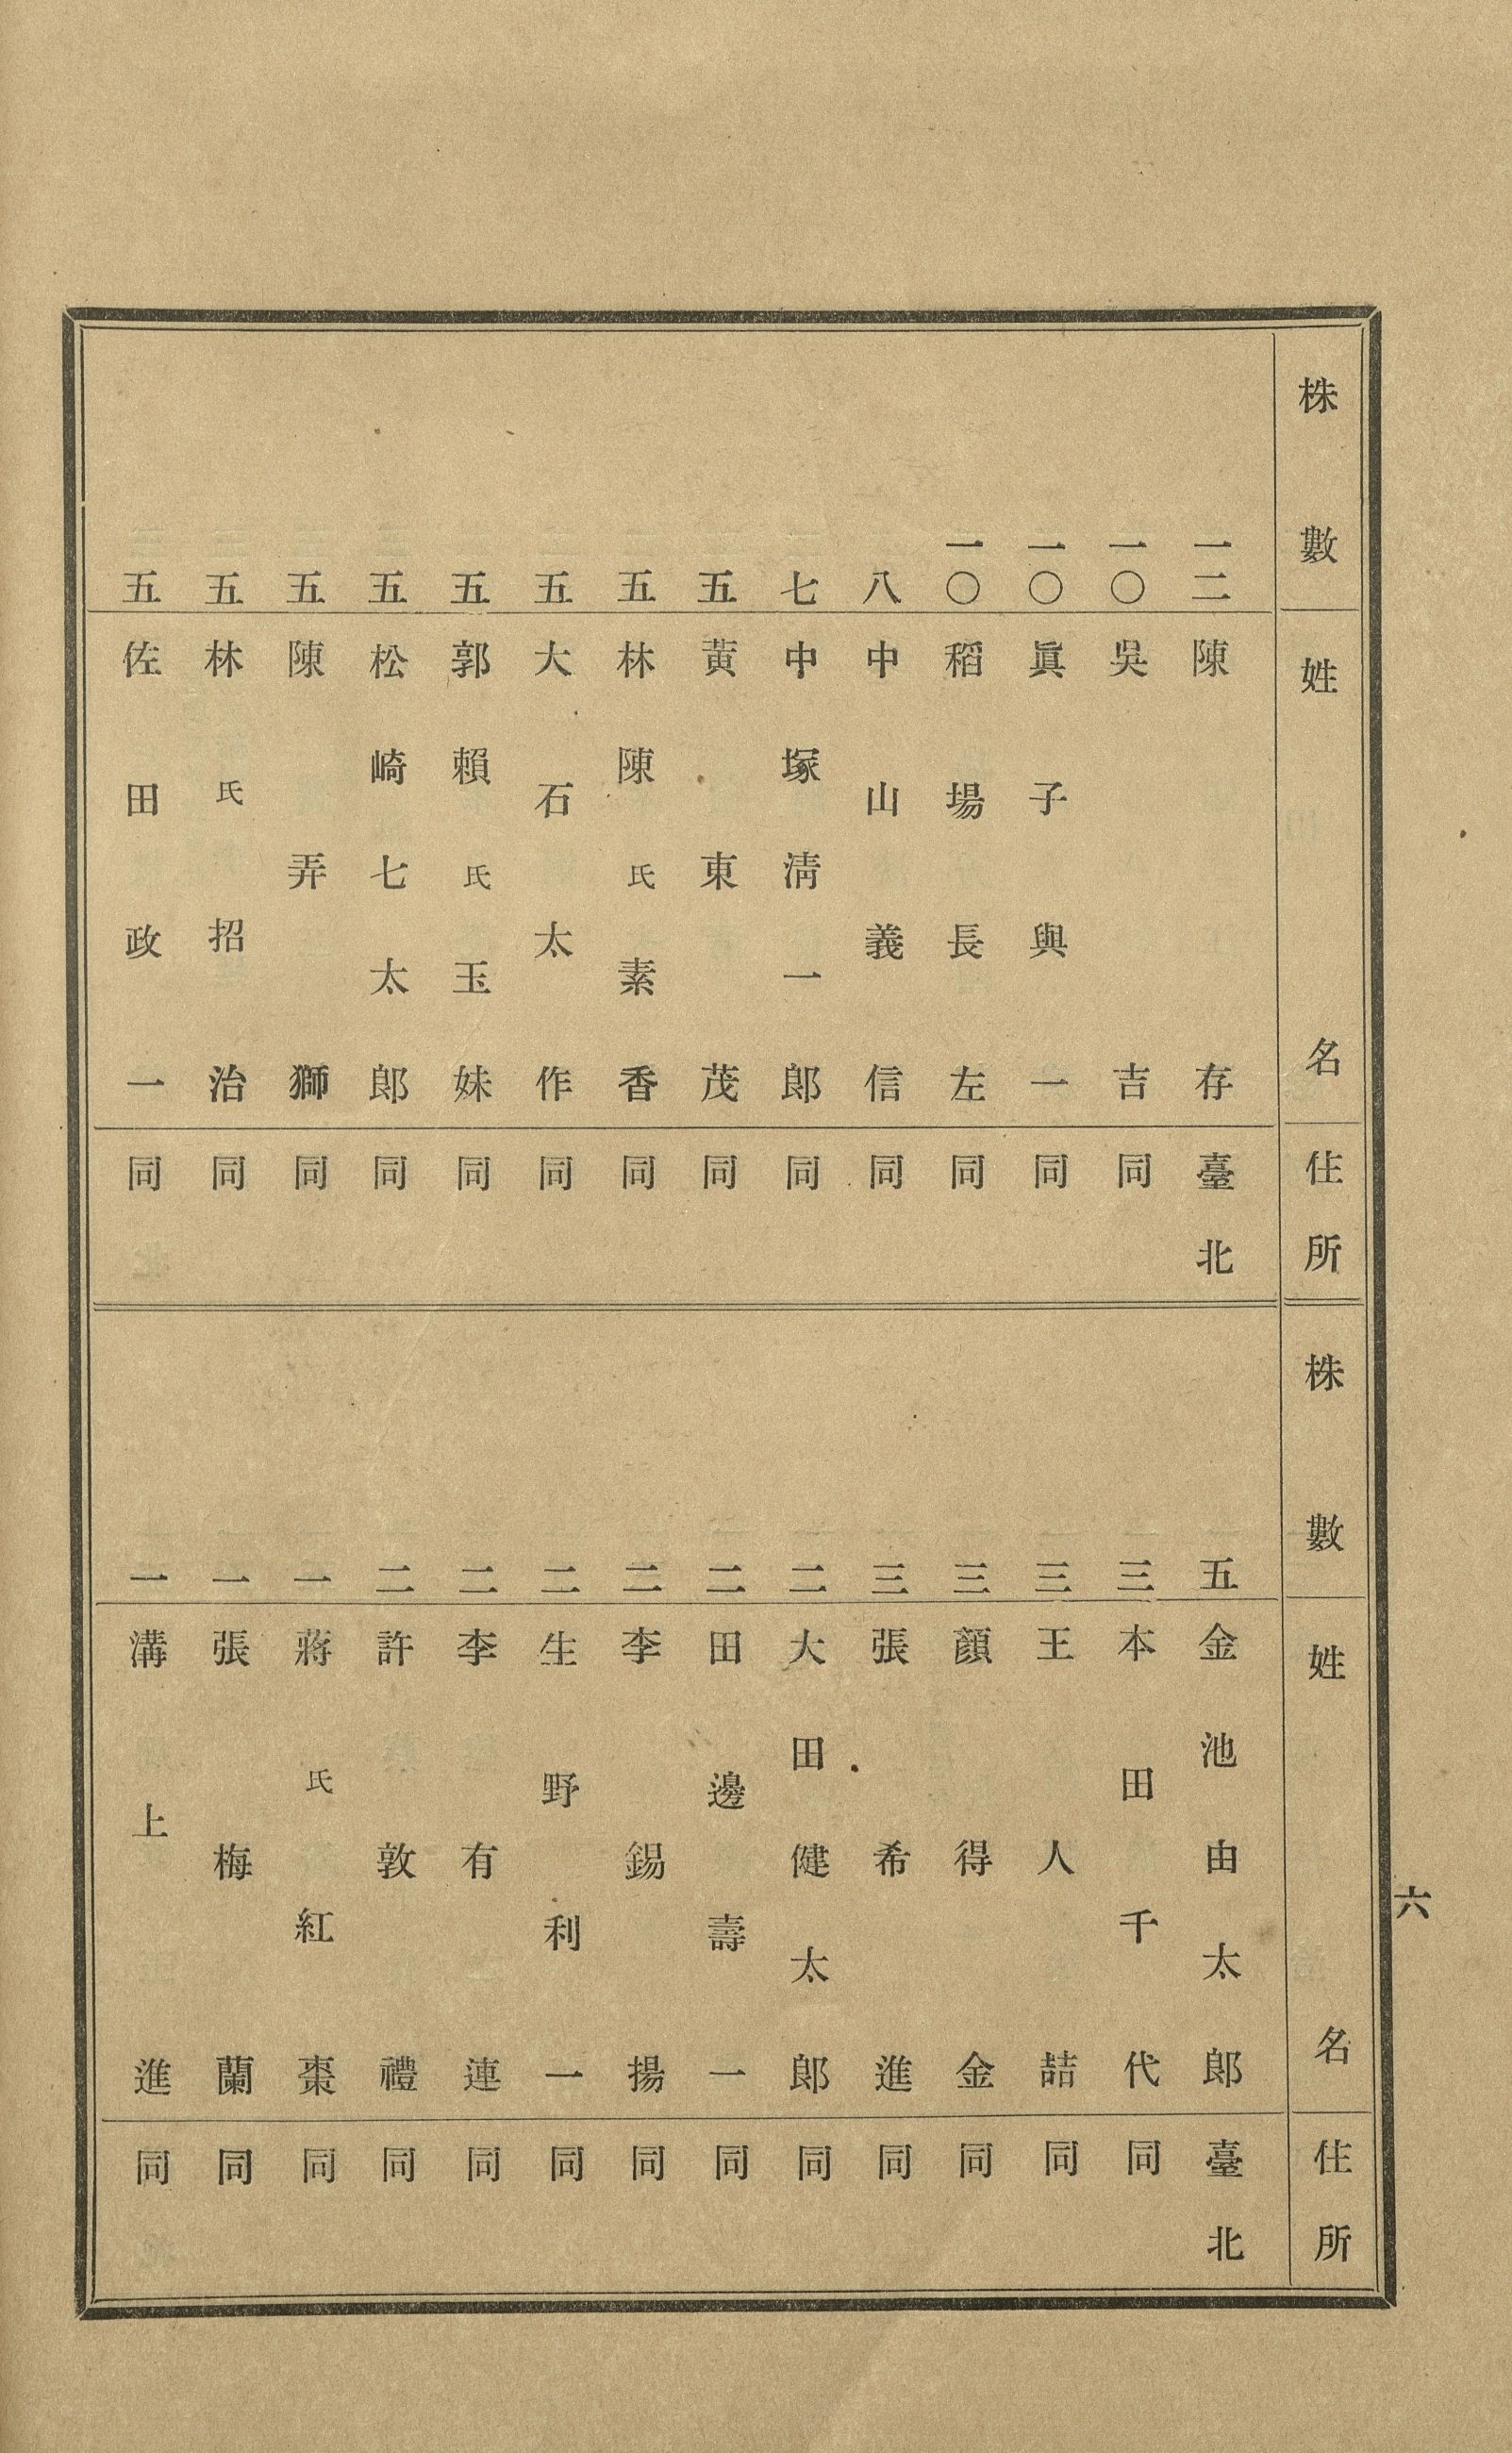 株數 姓名 住所
一二 陳存 臺北
一〇 吳吉 同
一〇 眞子與一 同
一〇 稻場長左 同
八 中山義信 同
七 中塚淸一郎 同
五 黃東茂 同
五 林陳氏素香 同
五 大石太作 同
五 郭賴氏玉妹 同
五 松崎七太郎 同
五 陳弄獅 同
五 林氏招治 同
五 佐田政一 同
株數 姓名 住所
五 金池由太郎 臺北
三 本田千代 同
三 王人喆 同
三 顏得金 同
三 張希進 同
二 大田健太郎 同
二 田邊壽一 同
二 李錫揚 同
二 生野利一 同
二 李有連 同
二 許敦禮 同
一 蔣氏紅棗 同
一 張梅蘭 同
一 溝上進 同
六